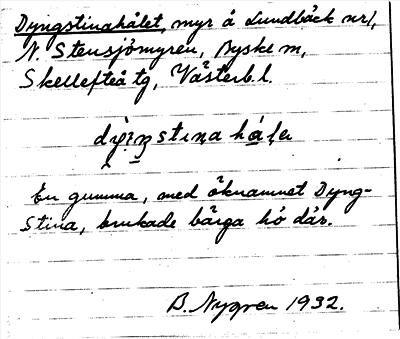 Dyngstinahålet, myr å Lundbäck nr 1,
N. Stensjömyren, Byske sn,
Skellefteå tg, Västerb. l.
En gumma, med öknamnet Dyng-
Stina, brukade bärga hö där.
B. Nygren 1932.